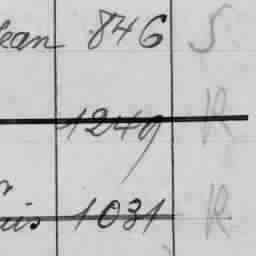 ean 846 S
1249 R
is 1031 R